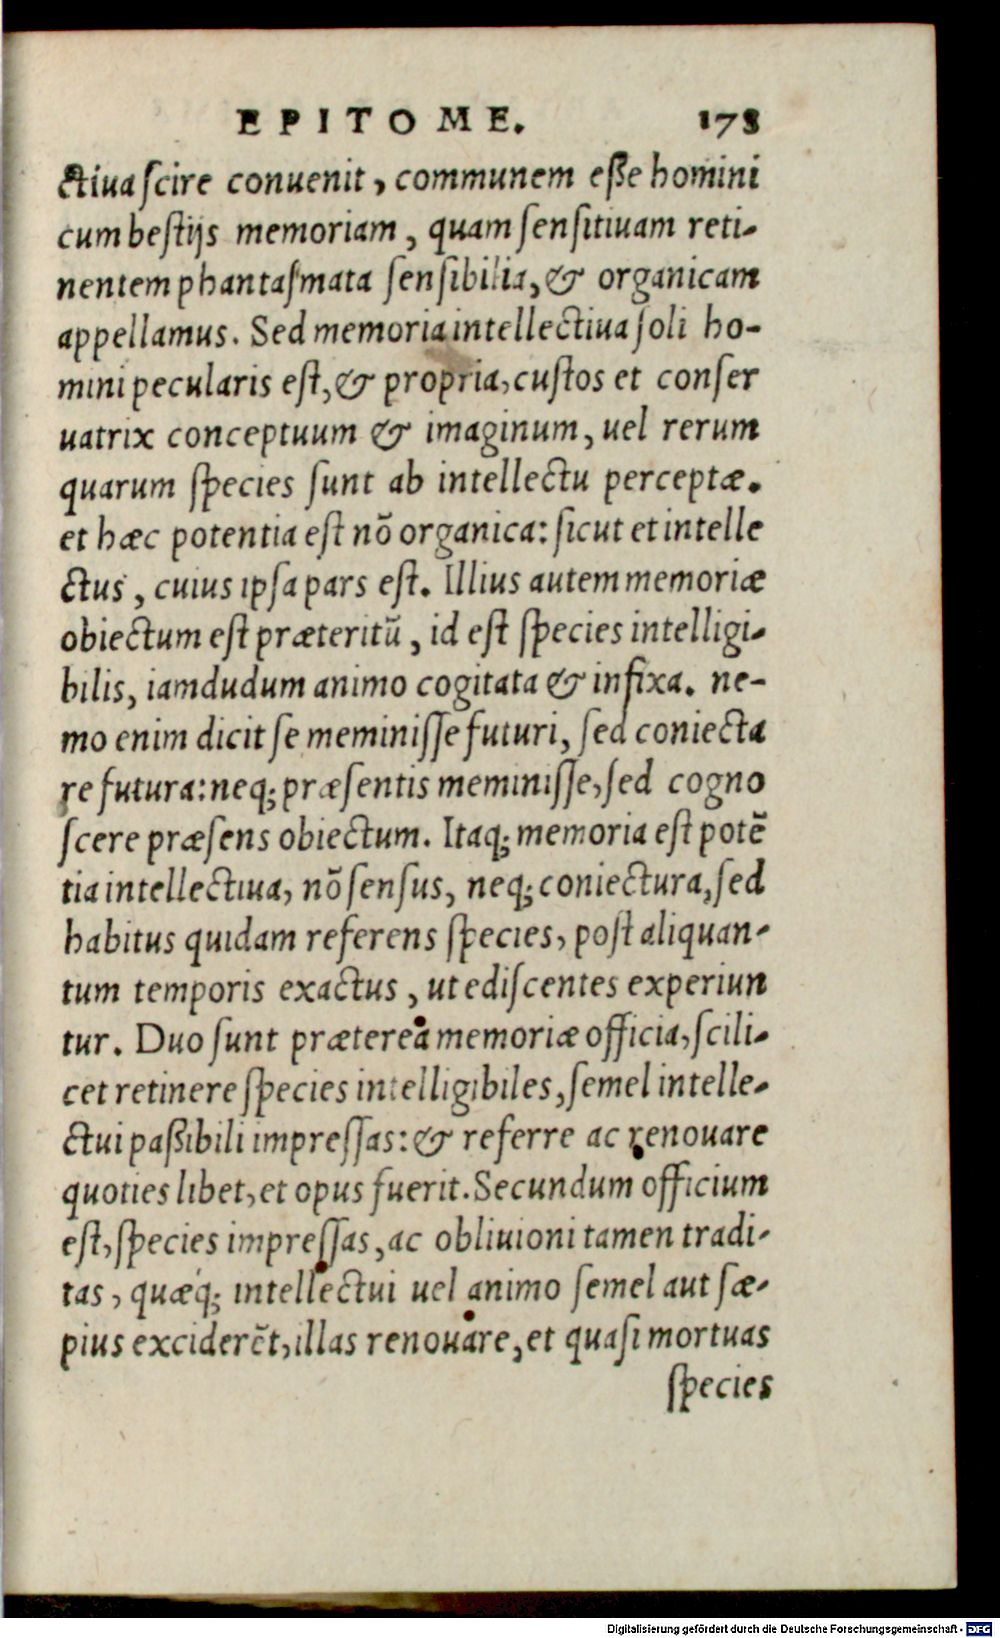 EPITOME. 173
ctiua scire conuenit, communem esse homini
cum bestijs memoriam, quam sensitiuam reti-
nentem phantasmata sensibilia, & organicam
appellamus. Sed memoria intellectiua soli ho-
mini pecularis est, & propria, custos et conser
uatrix conceptuum & imaginum, uel rerum
quarum species sunt ab intellectu perceptæ.
et hæc potentia est nō organica: sicut et intelle
ctus, cuius ipsa pars est. Illius autem memoriæ
obiectum est præteritũ, id est species intelligi-
bilis, iamdudum animo cogitata & infixa. ne-
mo enim dicit se meminisse futuri, sed coniecta
re futura: neq; præsentis meminisse, sed cogno
scere præsens obiectum. Itaq; memoria est potẽ
tia intellectiua, nō sensus, neq; coniectura, sed
habitus quidam referens species, post aliquan-
tum temporis exactus, ut ediscentes experiun
tur. Duo sunt præterea memoriæ officia, scili-
cet retinere species intelligibiles, semel intelle-
ctui paßibili impressas: & referre ac renouare
quoties libet, et opus fuerit. Secundum officium
est, species impressas, ac obliuioni tamen tradi-
tas, quæq; intellectui uel animo semel aut sæ-
pius exciderẽt, illas renouare, et quasi mortuas
species
Digitalisierung gefördert durch die Deutsche Forschungsgemeinschaft - DFG